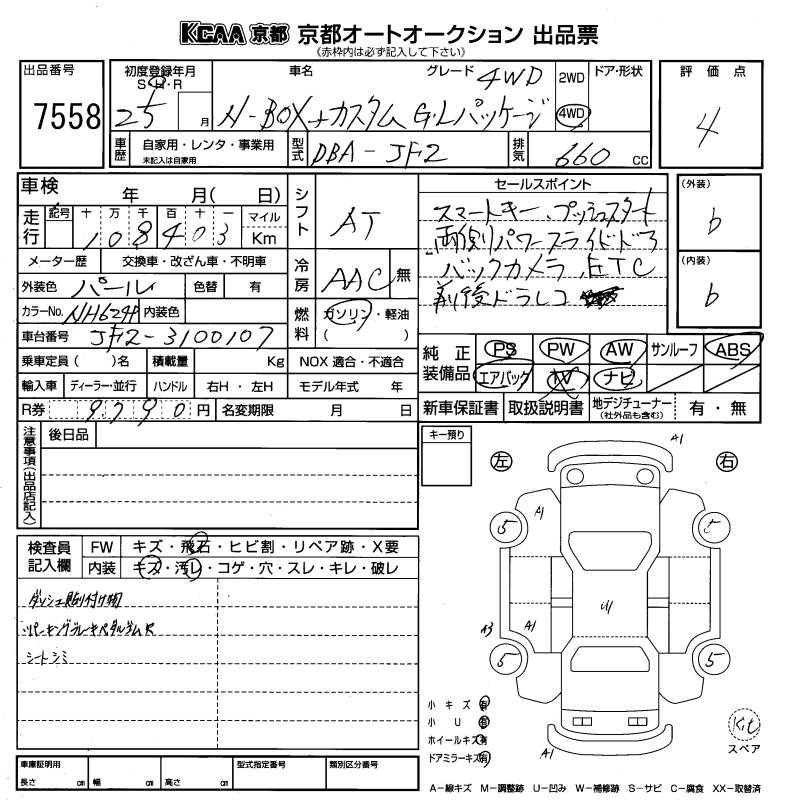 KCAA 京都 京都オートオークション 出品票
《赤枠内は必ず記入して下さい》
出品番号 初度登録年月 車名 グレード 4WD 2WD ドア・形状 評価点
S・H・R
7558 25 月 N-BOX+カスタム G・Lパッケージ 4WD 4
車歴 自家用・レンタ・事業用 型式 DBA-JF2 排気 660 cc
未記入は自家用
車検 年 月( 日) シフト AT セールスポイント (外装)
走行 記号 十 万 千 百 十 一 マイル スマートキー、プッシュスタート b
108403 Km 両側パワースライドドア
メーター歴 交換車・改ざん車・不明車 冷房 AAC 無 バックカメラ ETC (内装)
外装色 パール 色替 有 前後ドラレコ b
カラーNo. NH624P 内装色 燃料 ガソリン・軽油
車台番号 JF2-3100107 ( )
乗車定員( )名 積載量 Kg NOX 適合・不適合 純正装備品 PS PW AW サンルーフ ABS
輸入車 ディーラー・並行 ハンドル 右H・左H モデル年式 年 エアバック TV ナビ
R券 9790 円 名変期限 月 日 新車保証書 取扱説明書 地デジチューナー 有・無
(社外品も含む)
注意事項(出品店記入) 後日品
キー預り
左 右
A1
5 A1 5
検査員記入欄 FW キズ・飛石・ヒビ割・リペア跡・X要
内装 キズ・汚レ・コゲ・穴・スレ・キレ・破レ
ダッシュ貼り付け物
パーキングブレーキペダルゴムK
シートシミ
A3 A1
5 5
小キズ 有
小U 有
ホイールキズ 有
ドアミラーキズ 有
A1
Kit
スペア
車庫証明用 型式指定番号 類別区分番号
長さ cm 幅 cm 高さ cm
A-線キズ M-調整跡 U-凹み W-補修跡 S-サビ C-腐食 XX-取替済